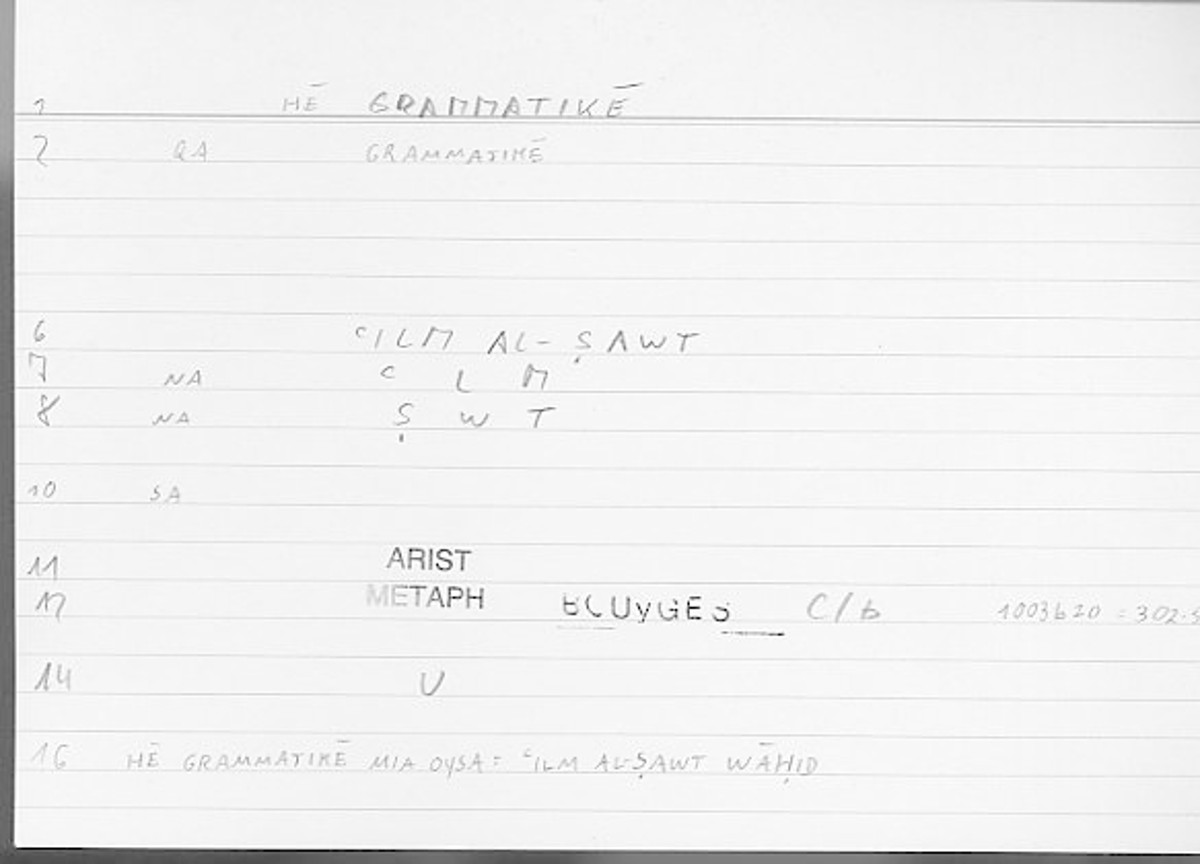 1 HĒ GRAMMATIKĒ
2 QA GRAMMATIKĒ
6 ʿILM AL-ṢAWT
7 NA ʿ L M
8 NA Ṣ W T
10 SA
11 ARIST
12 METAPH BOUyGES C/b 1003b20 = 302.5
14 U
16 HĒ GRAMMATIKĒ MIA OYSA = ʿILM AL-ṢAWT WĀḤID